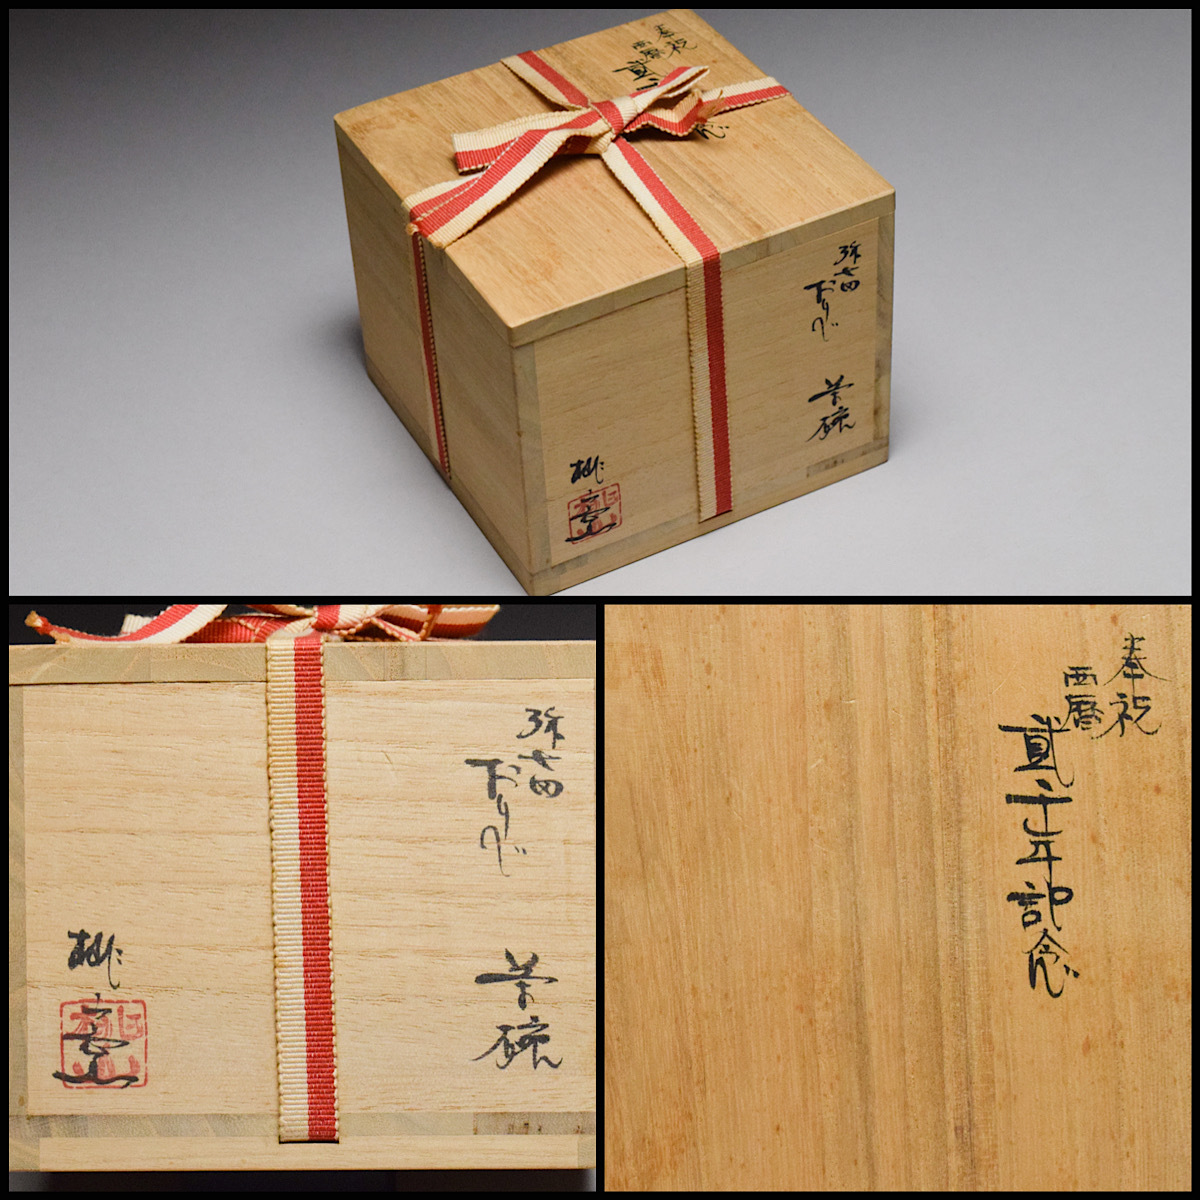 奉祝
西暦
貳
念
弥七田
おりべ
茶碗
桃
弥七田
おりべ
茶碗
桃
奉祝
西暦
貳千年記念